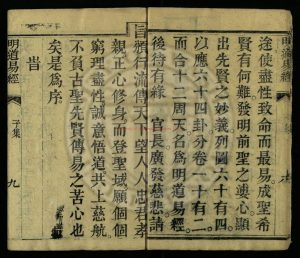 明道易經
途使盡性致命而最易成聖希
賢何難發明前聖之婆心顯
出先賢之妙義列圖六十有四
以應六十四卦分卷一十有二
而合十二周天名為明道易經
後待有緣 官長廣發慈悲請
旨頒行流傳天下望人人忠君孝
親正心修身而登聖域願個個
窮理盡性誠意悟道共上慈航
不負古聖先賢傳易之苦心也
矣是為序
旹
明道易經 子集 九